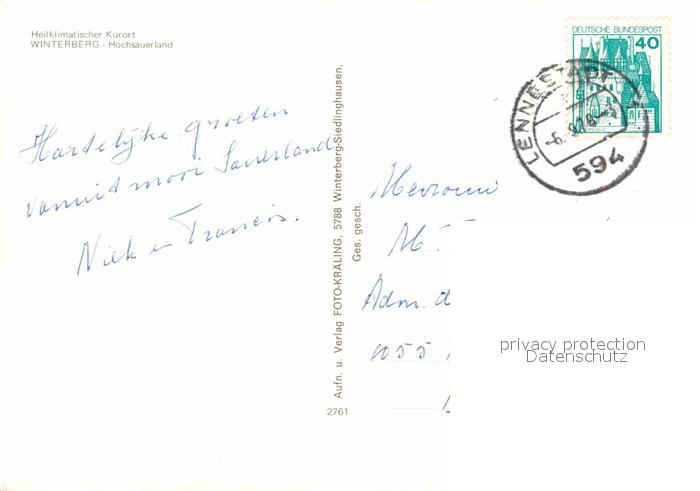 Heilklimatischer Kurort
WINTERBERG - Hochsauerland
Hartelijke groeten
vanuit mooi Sauerland
Niek en Francis.
Aufn. u. Verlag FOTO-KRÄLING, 5788 Winterberg-Siedlinghausen,
Ges. gesch.
2761
DEUTSCHE BUNDESPOST
40
LENNESTADT
594
Mevrouw
M
Adm. d
1055
privacy protection
Datenschutz